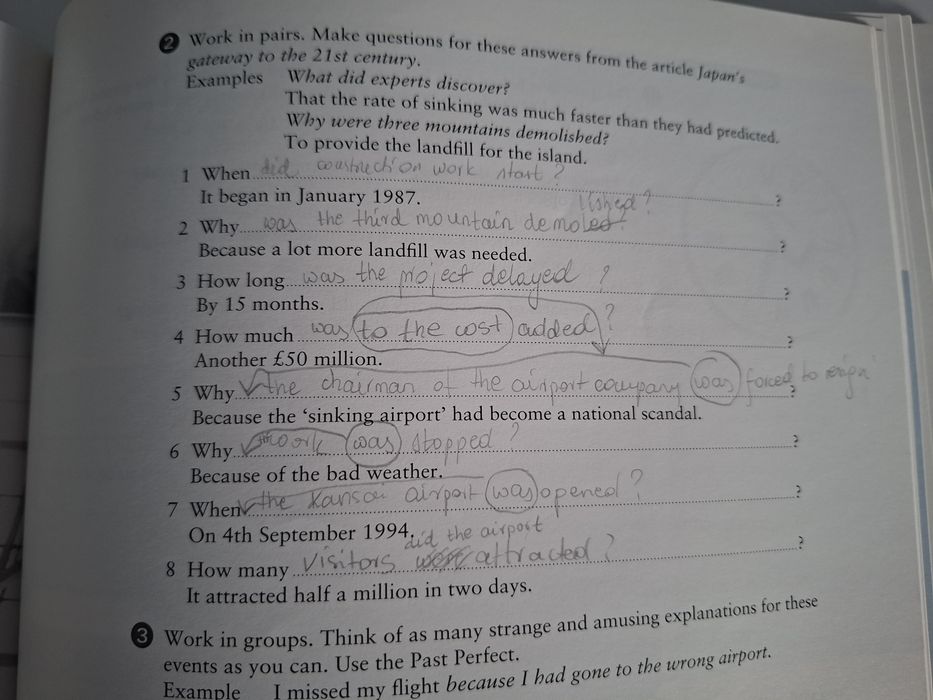 2 Work in pairs. Make questions for these answers from the article Japan's
gateway to the 21st century.
Examples What did experts discover?
That the rate of sinking was much faster than they had predicted.
Why were three mountains demolished?
To provide the landfill for the island.
1 When did construction work start? ?
It began in January 1987.
lished?
2 Why was the third mountain demoled? ?
Because a lot more landfill was needed.
3 How long was the project delayed ? ?
By 15 months.
4 How much was to the cost added ? ?
Another £50 million.
5 Why the chairman of the airport company was forced to resign ?
Because the 'sinking airport' had become a national scandal.
6 Why work was stopped ? ?
Because of the bad weather.
7 When the Kansai airport was opened ? ?
On 4th September 1994.
did the airport
8 How many visitors were attracted ? ?
It attracted half a million in two days.
3 Work in groups. Think of as many strange and amusing explanations for these
events as you can. Use the Past Perfect.
Example I missed my flight because I had gone to the wrong airport.